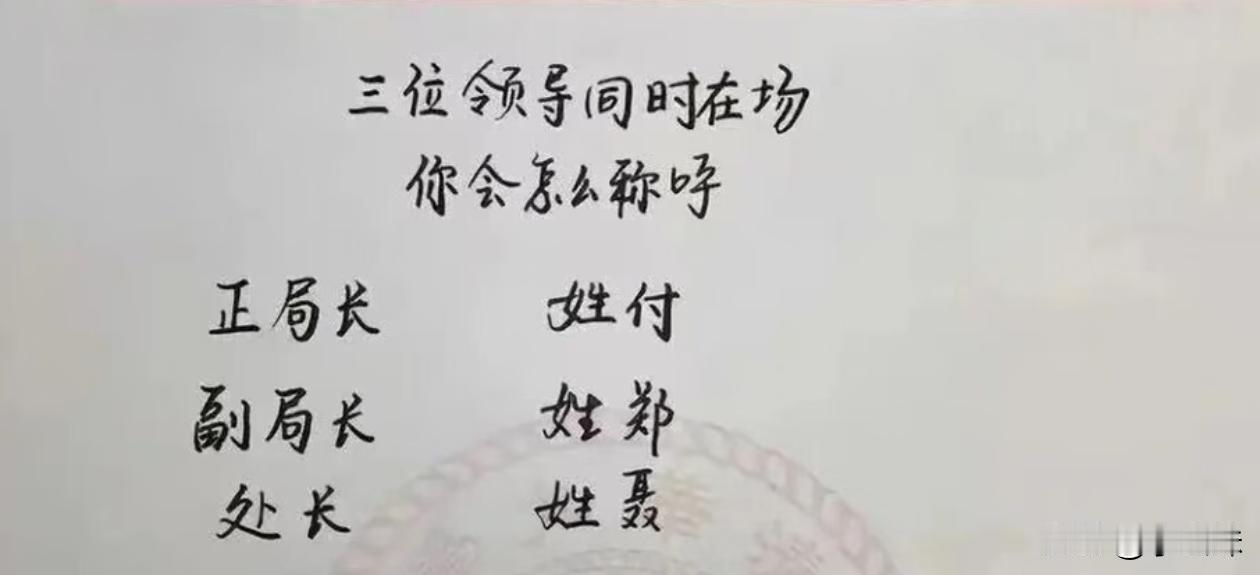 三位领导同时在场
你会怎么称呼
正局长 姓付
副局长 姓郑
处长 姓聂